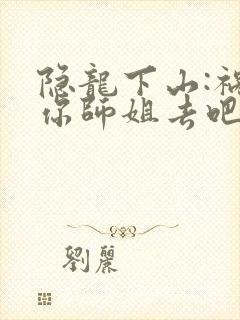 隐龍下山:禍
你師姐去吧
劉麗